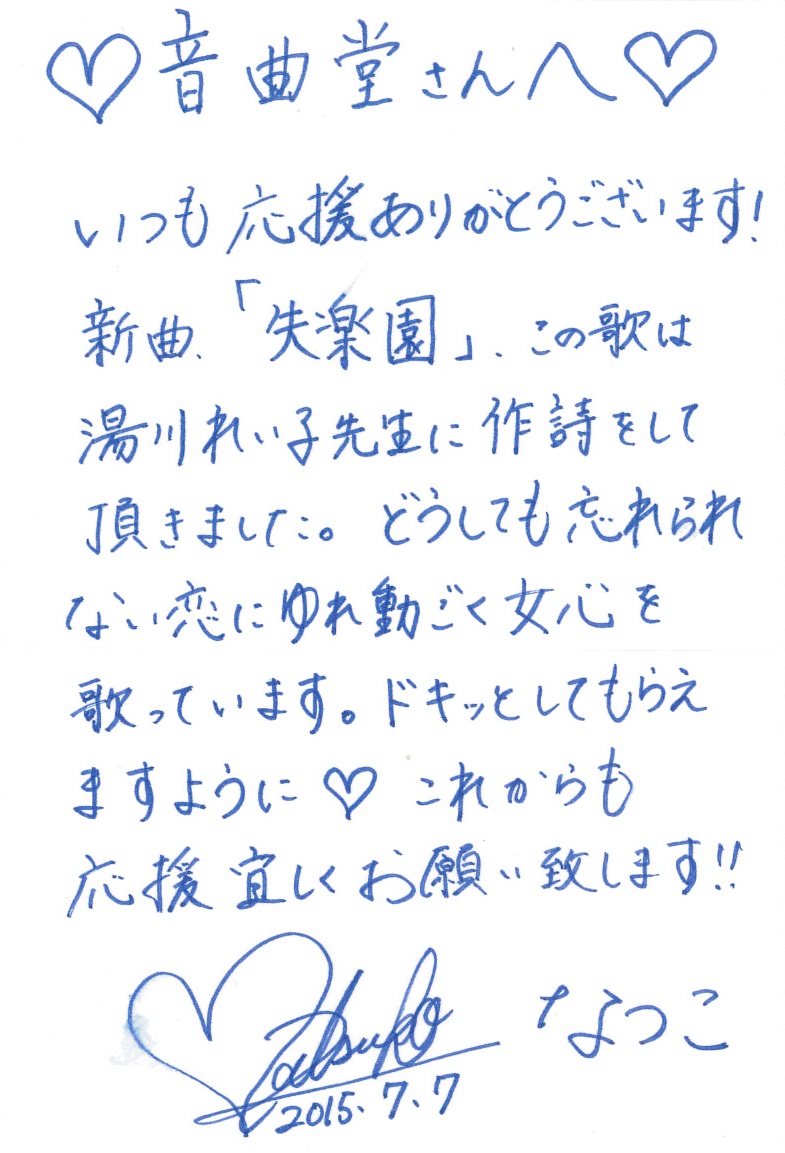 ♡音曲堂さんへ♡
いつも応援ありがとうございます!
新曲、「失楽園」、この歌は
湯川れい子先生に作詩をして
頂きました。どうしても忘れられ
ない恋にゆれ動ごく女心を
歌っています。ドキッとしてもらえ
ますように♡ これからも
応援宜しくお願い致します!!
Natsuko なつこ
2015.7.7